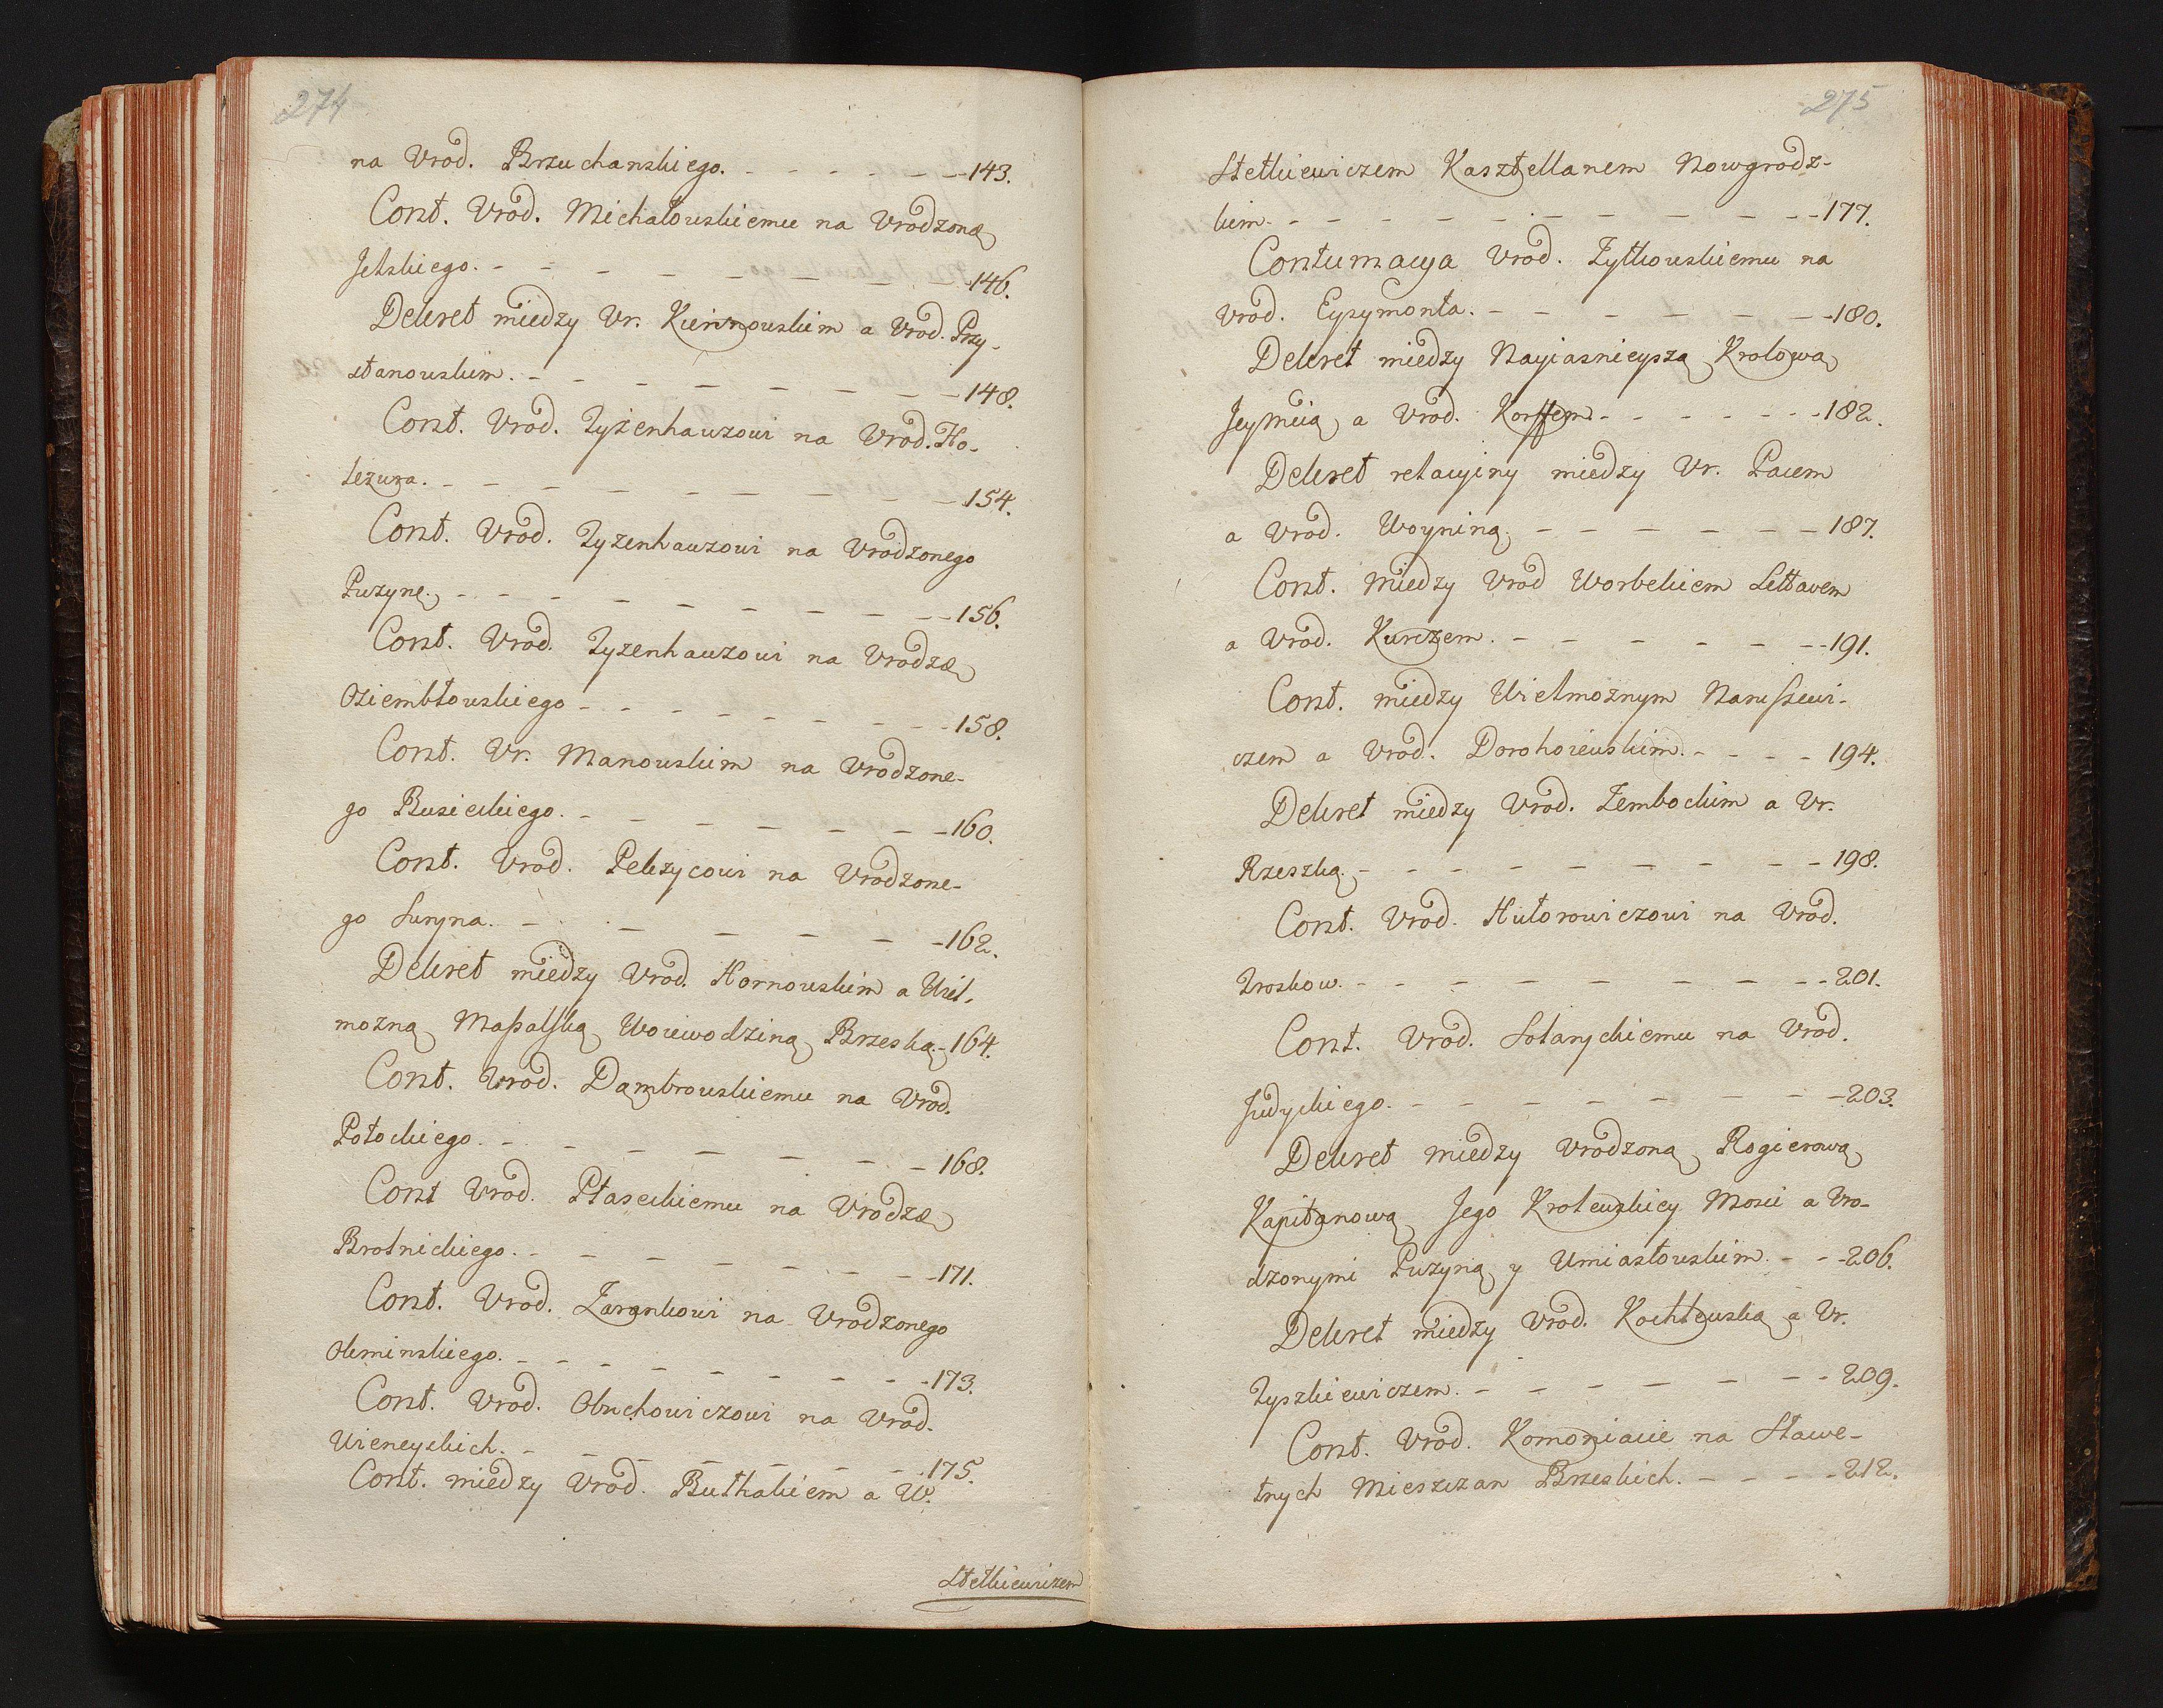 274
na Vrod. Brzuchanskiego. - - - - - - 143.
Cont. Vrod. Michałowskiemu na Vrodzone(g)
Jelskiego. - - - - - - - - 146.
Dekret między Vr. Kiernowskim a Vrod. Przy-
stanowskim. - - - - - - - - 148.
Cont. Vrod. Zyzenhauzowi na Vrod. Ho-
lezura. - - - - - - - - - 154.
Cont. Vrod. Zyzenhauzowi na Vrodzonego
Puzynę. - - - - - - - - - 156.
Cont. Vrod. Zyzenhauzowi na Vrodzo
Oziembłowskiego - - - - - - - - 158.
Cont. Vr. Manowskim na Vrodzone-
go Busieckiego. - - - - - - - 160.
Cont. Vrod. Pekzycowi na Vrodzone-
go Suryna. - - - - - - 162.
Dekret między Vrod. Hornowskim a Wiel-
mozną Massalską Woiewodziną Brzeską - 164.
Cont. Vrod. Dąmbrowskiemu na Vrod.
Potockiego. - - - - - - - - 168.
Cont Vrod. Ptaseckiemu na Vrodzo
Brolnickiego. - - - - - - - - 171.
Cont. Vrod. Zarankowi na Vrodzonego
Oleminskiego. - - - - - - - - 173.
Cont. Vrod. Obuchowiczowi na Vrod.
Wieneyskich. - - - - - - - 175.
Cont. między Vrod. Buthakiem a W.
Stetkiewiczem
275
Stetkiewiczem Kasztellanem Nowgrodz-
kim - - - - - - - - - - 177.
Contumacya Vrod. Zytkowskiemu na
Vrod. Eysymonta. - - - - - - - 180.
Dekret miedzy Nayiasnieyszą Krolową
Jeymcią a Vrod. Korffem - - - - - - - 182.
Dekret relacyiny miedzy Vr. Pacem
a Vrod. Woyniną. - - - - - - 187.
Cont. między Vrod Worbekiem Lettavem
a Vrod. Kurczem. - - - - - - - 191.
Cont. między Wielmoznym Narussewi-
czem a Vrod. Dorohoiewskim. - - - - 194.
Dekret między Vrod. Zembockim a Vr.
Rzeszką. - - - - - - - - 198.
Cont. Vrod. Hutorowiczowi na Vrod.
Zroskow. - - - - - - - - - 201.
Cont. Vrod. Sotanyckiemu na Vrod.
Judyckiego. - - - - - - - - 203.
Dekret miedzy Vrodzoną Rogierową
Kapitanową Jego Krolewskiey Mosci a Vro-
dzonymi Puzyną y Umiastowskim. - - - 206.
Dekret między Vrod. Kochlewską a Vr.
Zyszkiewiczem. - - - - - - - 209.
Cont. Vrod. Komoniacie na Sławe-
tnych Mieszczan Brzeskich. - - - - 212.